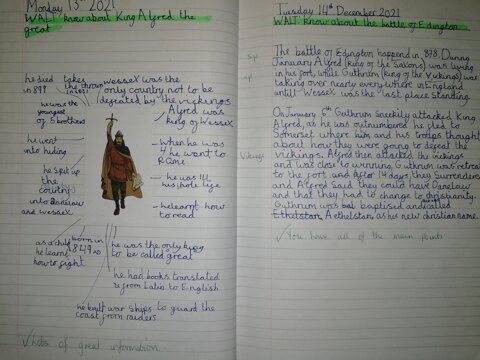 Monday 13th 2021
WALT know about King Alfred the
great
he died
in 899
takes
the throne
in 871
wessex was the
only country not to be
defeated by the vickings
he was the
youngest
of 5 brothers
Alfred was
king of Wessex
he went
into hiding
When he was
4 he went to
Rome
he split up
the country
into Danelaw
and wessex
he was ill
his whole life
he learnt how
to read
as a child
he learnt
how to fight
born in
849 AD
he was the only king
to be called great
he had books translated
from Latin to English
he built war ships to guard the
coast from raiders
Lots of great information.
Tuesday 14th December 2021
WALT know about the battle of Edington
sp
The battle of Edington happend in 878. During
January Alfred (king of the Saxons) was living
in his fort, while Guthrum (king of the Vikings) was
sp
taking over nearly every where in England
untill Wessex was the last place standing.
On January 6th Guthrum sneekily attacked King
Alfred, as he was outnumbered he fled to
Somerset where him and his troops thought
about how they were going to defeat the
Vikings
vickings. Alfred then attacked the vickings
and was close to winning Guthrum was retreat
to the fort and after 14 days they surrendered
and Alfred said they could have Danelaw
and that they had to change to christianity.
Guthrum was baptised and called
Ethelstan, Athelstan, as his new christian name.
You have all of the main points